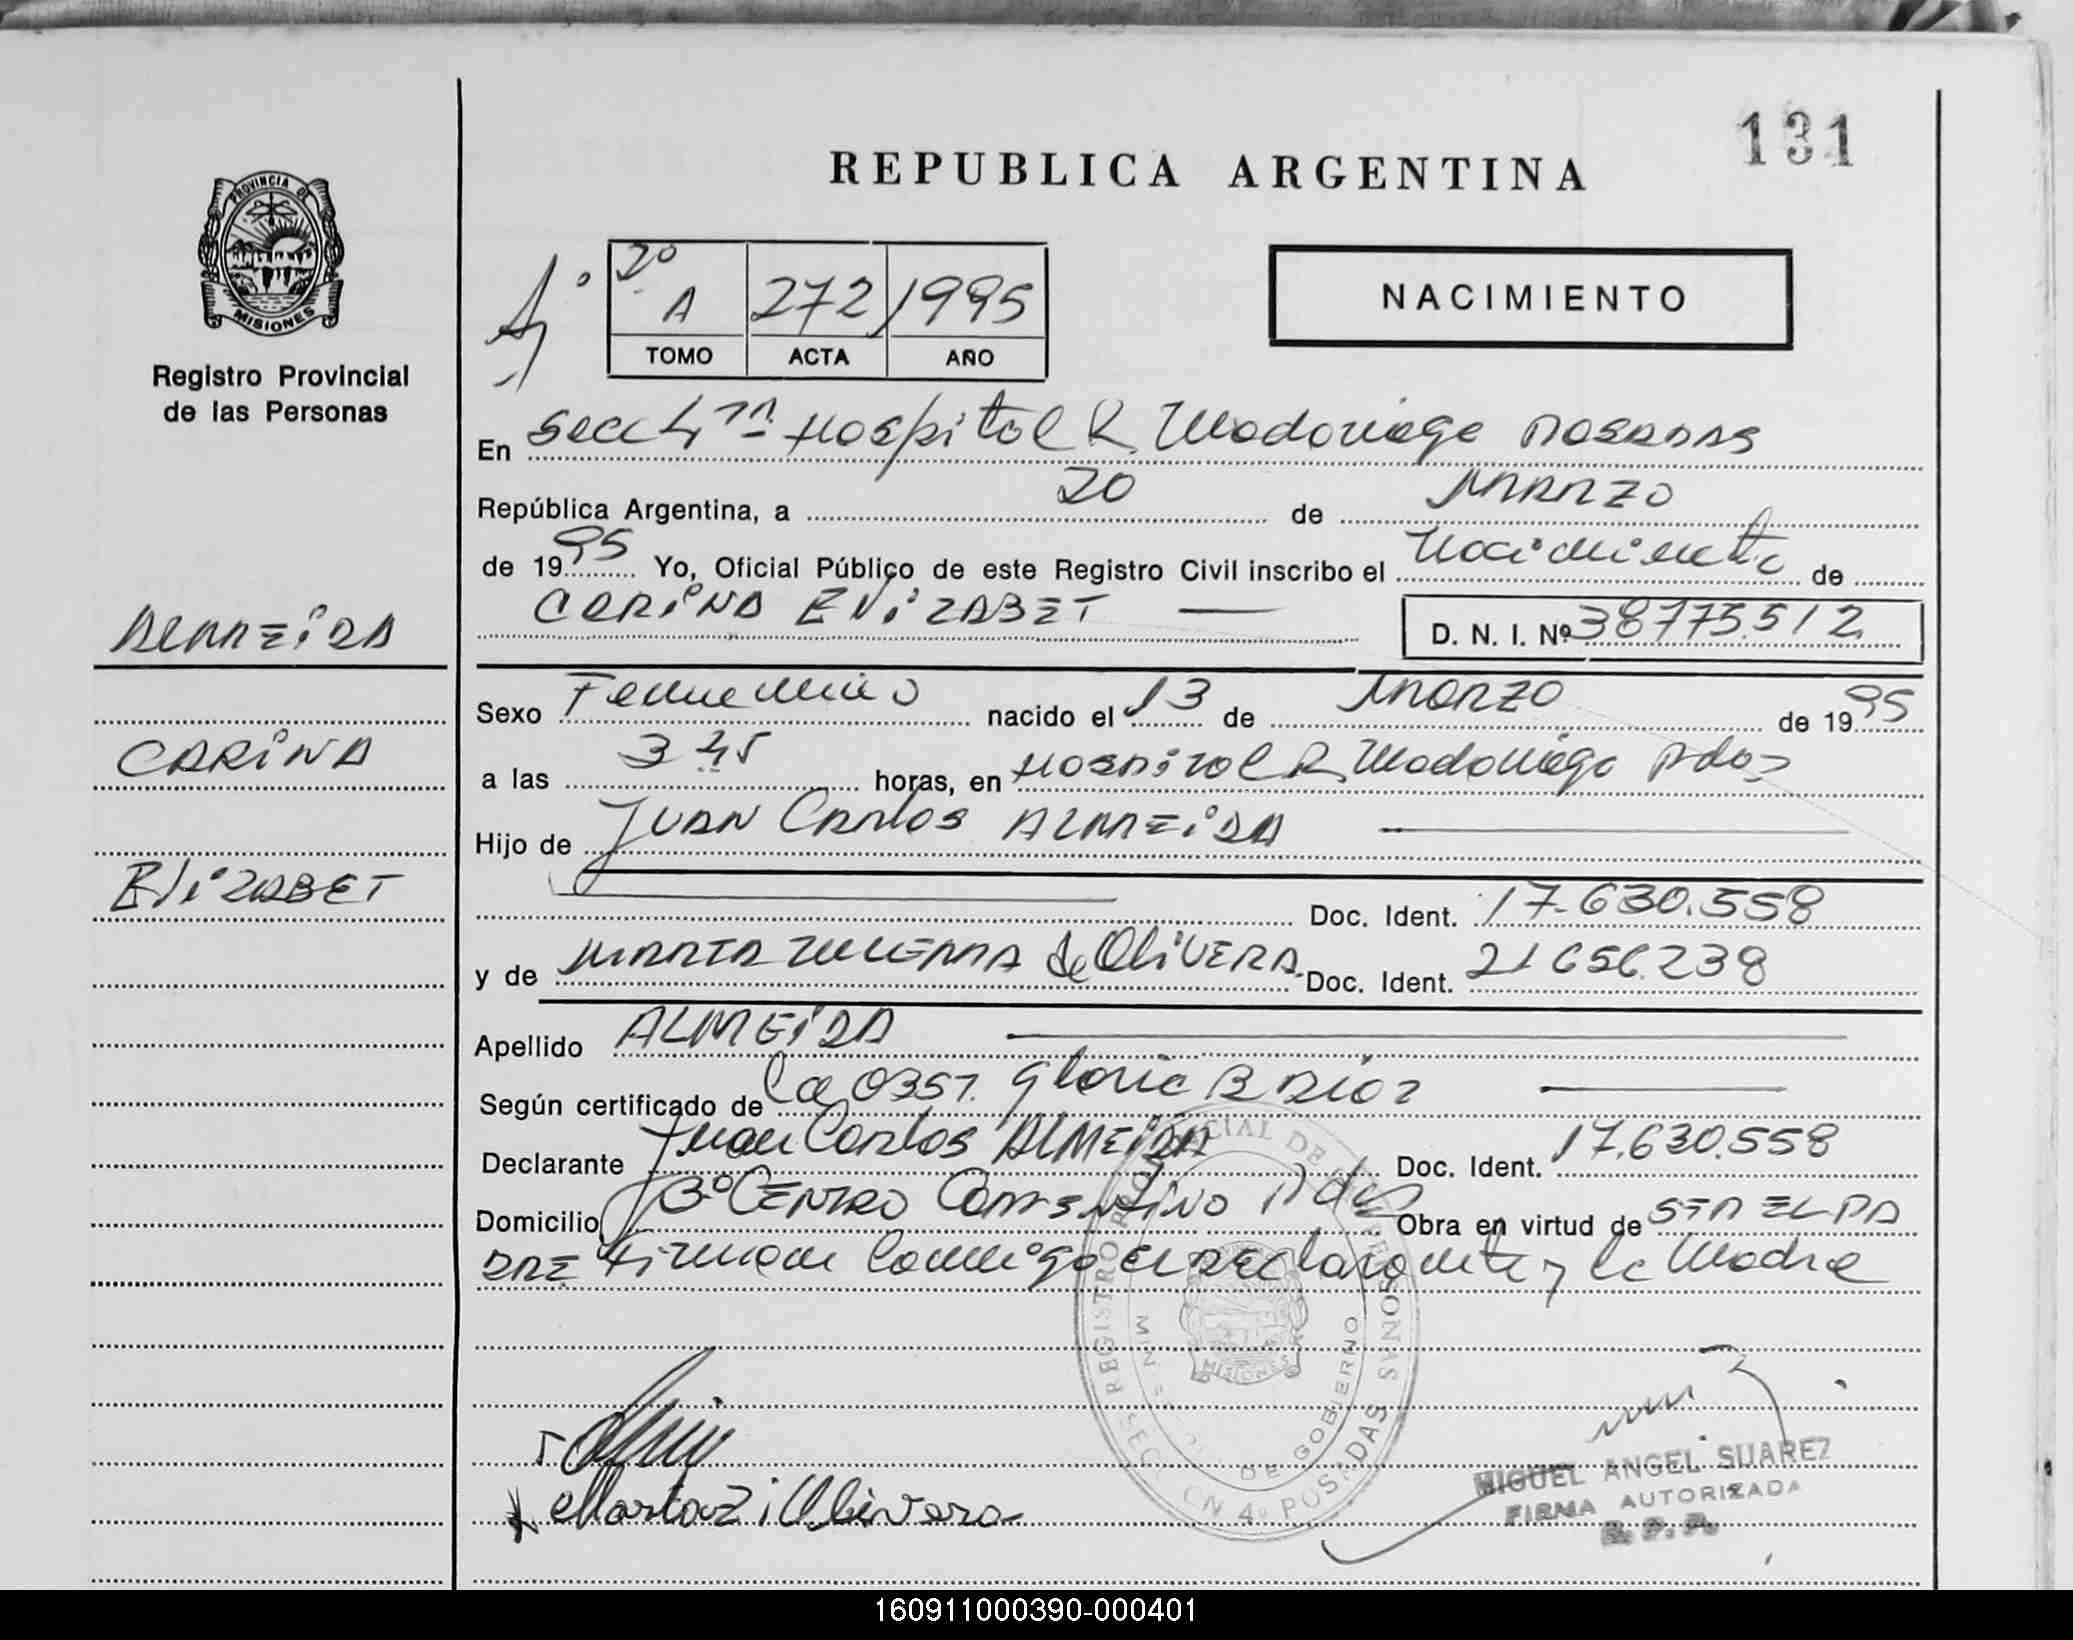 131
REPUBLICA ARGENTINA
PROVINCIA DE
MISIONES
Registro Provincial
de las Personas
2º
A 272 1995
TOMO ACTA AÑO
NACIMIENTO
En Secc 4ta Hospital R Madariaga POSADAS
República Argentina, a 20 de MARZO
de 1995 Yo, Oficial Público de este Registro Civil inscribo el Nacimiento de
CARINA ELIZABET D. N. I. Nº 38775.512
ALMEIDA
CARINA
ELIZABET
Sexo Femenino nacido el 13 de MARZO de 1995
a las 3 45 horas, en HOSPITAL R Madariaga Pdas
Hijo de JUAN CARLOS ALMEIDA
Doc. Ident. 17.630.558
y de MARTA de OLIVERA. Doc. Ident. 21656.238
Apellido ALMEIDA
Según certificado de La OBST. Gloria B
Declarante Juan Carlos ALMEIDA Doc. Ident. 17.630.558
Domicilio Bº CENTRO Pdas Obra en virtud de SER EL PA
DRE Firman Conmigo el DEClarante y la Madre
REGISTRO PROVINCIAL DE LAS PERSONAS
SECCION 4º POSADAS
MINISTERIO DE GOBIERNO
MISIONES
Marta Z Olivera
MIGUEL ANGEL SUAREZ
FIRMA AUTORIZADA
R. P. P.
160911000390-000401